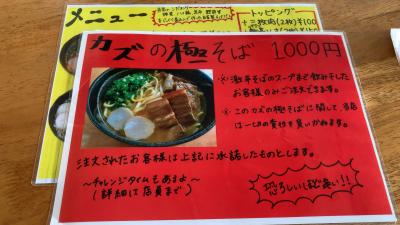 メニュー
トッピング
+三枚肉(2枚)¥100
カズの極そば 1000円
※激辛そばのスープまで飲み干した
お客様のみご注文できます。
※このカズの極そばに関して、当店
は一切の責任を負いかねます。
注文されたお客様は上記に承諾したものとします。
～チャレンジタイムもあるよ～
(詳細は店員まで)
恐ろしいし激臭い!!